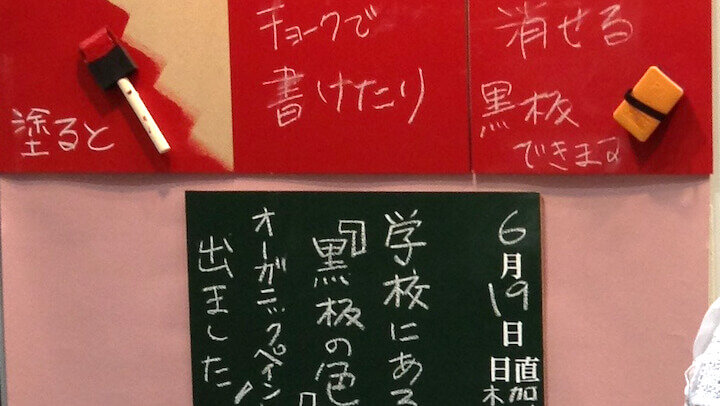 塗ると
チョークで
書けたり
消せる
黒板
できます
6月19日
日直
学校にある
「黒板の色
オーガニックペイン
出ました